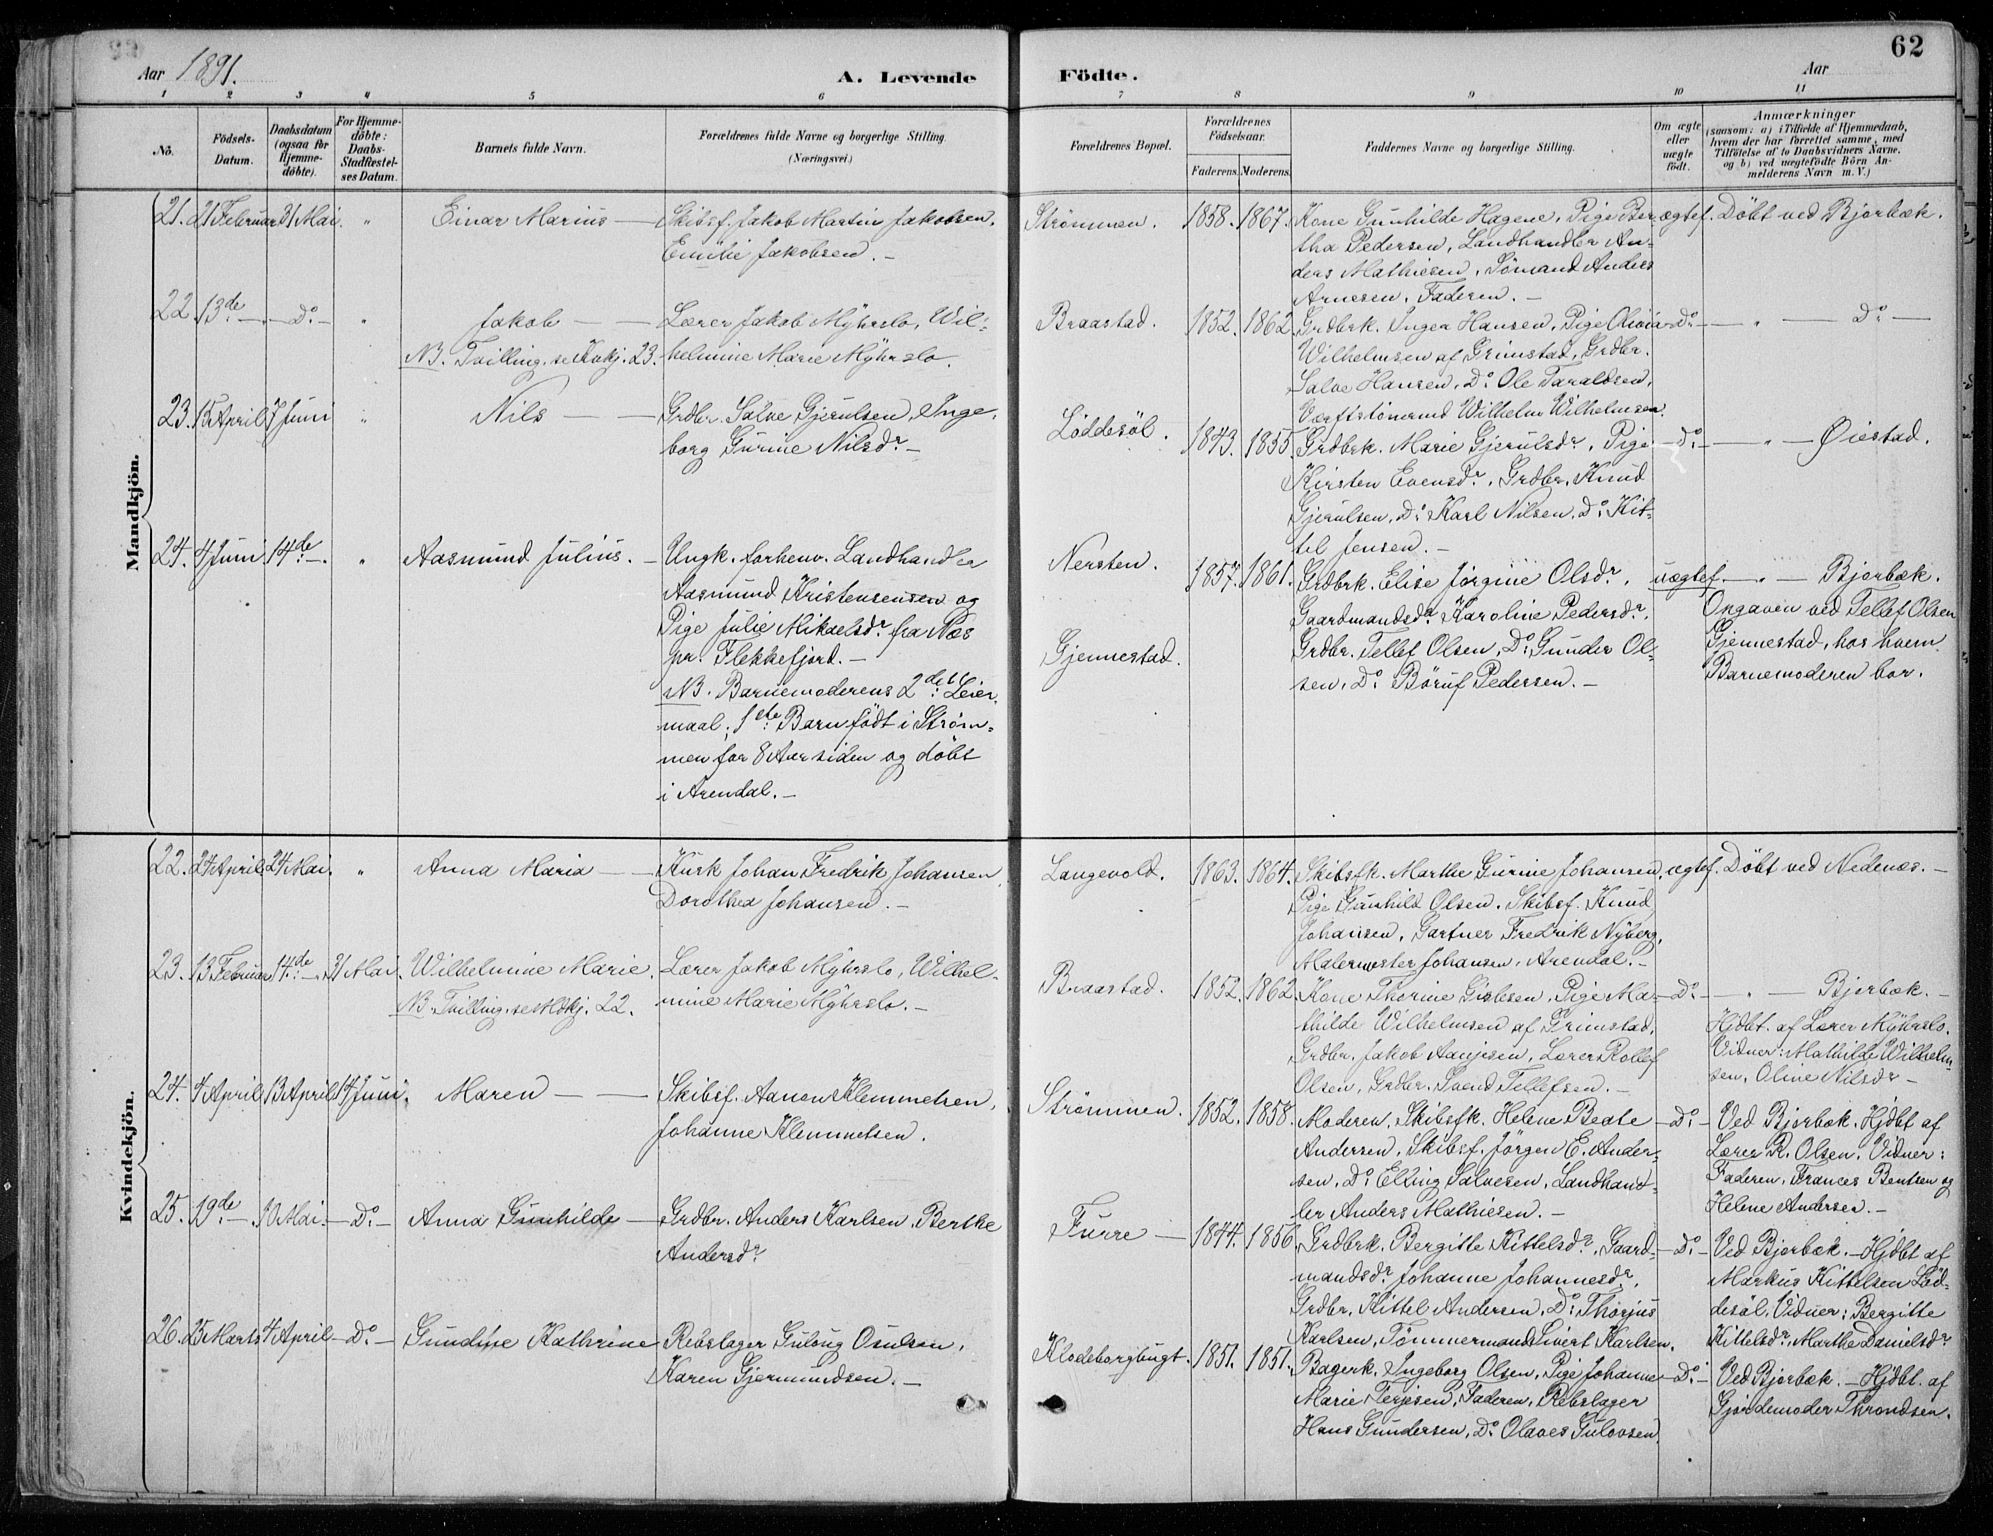 62
Aar 1891.
A. Levende Födte.
Aar
1 2 3 4 5 6 7 8 9 10 11
No.
Födsels-Datum.
Daabsdatum (ogsaa för Hjemme-döbte).
For Hjemme-döbte: Daabs-Stadfæstel-ses Datum.
Barnets fulde Navn.
Forældrenes fulde Navne og borgerlige Stilling.
(Næringsvei.)
Forældrenes Bopæl.
Forældrenes Födselsaar.
Faderens. Moderens.
Faddernes Navne og borgerlige Stilling.
Om ægte eller uægte födt.
Anmærkninger
(saasom: a) i Tilfælde af Hjemmedaab,
hvem der har forrettet samme, med
Tilföielse af to Daabsvidners Navne,
og b) ved uægtefödte Börn An-
melderens Navn m. V.)
Mandkjön.
21. 21 Februar 31 Mai. " Einar Marius —
Skibsf. Jakob Martin Jakobsen,
Emilie Jakobsen. —
Strömmen. 1858. 1867.
Kone Gunhilde Hagene, Pige Ber-
tha Pedersen, Landhandler An-
ders Mathiesen, Sömand Anders
Arnesen, Faderen. —
ægtef. Döbt ved Bjorbæk.
22. 13de — Do — " Jakob —
NB. Tvilling, se Kvkj. 23.
Lærer Jakob Myhrslo, Wil-
helmine Marie Myhrslo.
Braastad. 1852. 1862.
Grdbrk. Inger Hansen, Pige Olivia
Wilhelmsen af Grimstad, Grdbr.
Salve Hansen, Do Ole Taraldsen,
Wilhelm Wilhelmsen.
Do — " — Do —
23. 15 April 7 Juni " Nils —
Grdbr. Salve Gjerulsen, Inge-
borg Gurine Nilsdr —
Löddesöl. 1843. 1855.
Grdbrk. Marie Gjerulsdr, Pige
Kirsten Evensdr, Grdbr. Knud
Gjerulsen, Do Karl Nilsen, Do Kit-
til Jensen. —
Do — " — Öiestad.
24. 4 Juni 14de — " Aasmund Julius. —
Ungk. forhenv. Landhandler
Aasmund Kristensensen og
Pige Julie Mikaelsdr fra Næs
pr. Flekkefjord. —
NB. Barnemoderens 2det Leier-
maal; 1ste Barn födt i Ström-
men for 8 Aar siden og döbt
i Arendal. —
Nersten.
Gjennestad.
1857. 1861.
Grdbrk. Elise Jörgine Olsdr,
Gaardmandsdr Karoline Pedersdr,
Grdbr. Tellef Olsen, Do Gunder Ol-
sen, Do Böruf Pedersen. —
uægtef. — " — Bjorbæk.
Opgaven ved Tellef Olsen
Gjennestad, hos hvem
Barnemoderen bor.
Kvindekjön.
22. 24 April 24 Mai. " Anna Maria —
Kusk Johan Fredrik Johansen,
Dorothea Johansen. —
Langevold. 1863. 1864.
Skibsfk. Marthe Gurine Johansen,
Pige Gunhild Olsen, Skibsf. Knud
Johansen, Gartner Fredrik Nyberg,
Malermester Johansen, Arendal. —
ægtef. Döbt ved Nedenæs. —
23. 13 Februar 14de — 31 Mai. Wilhelmine Marie.
NB. Tvilling, se Mdkj. 22.
Lærer Jakob Myhrslo, Wilhel-
mine Marie Myhrslo. —
Braastad. 1852. 1862.
Kone Thorine Gislesen, Pige Ma-
thilde Wilhelmsen af Grimstad,
Grdbr. Jakob Aanjesen, Lærer Rollef
Olsen, Grdbr. Svend Tellefsen. —
Do — " — Bjorbæk. —
Hjdbt. af Lærer Myhrslo.
Vidner: Mathilde Wilhelm-
sen, Oline Nilsdr —
24. 4 April 13 April 14 Juni. Maren —
Skibsf. Aanon Klemmetsen,
Johanne Klemmetsen.
Strömmen. 1852. 1858.
Moderen, Skibsfk. Helene Beate
Andersen, Skibsf. Jörgen E. Ander-
sen, Do Elling Salvesen, Landhand-
ler Anders Mathiesen. —
Do — Ved Bjorbæk. Hjdbt af
Lærer R. Olsen. Vidner:
Faderen, Frances Bentsen og
Helene Andersen. —
25. 19de — 10 Mai. — Do — Anna Gunhilde —
Grdbr. Anders Karlsen, Berthe
Andersdr
Furre — 1844. 1856.
Grdbrk. Bergitte Kittelsdr, Gaard-
mandsdr Johanne Johannesdr,
Grdbr. Kittel Andersen, Do Thorjus
Karlsen, Tömmermand Sivert Karlsen.
Do — Ved Bjorbæk. — Hjdbt af
Markus Kittelsen Löd-
desöl. Vidner: Bergitte
Kittelsdr, Marthe Danielsdr
26. 25 Marts 4 April — Do — Gundine Kathrine
Rebslager Guloug Osulsen,
Karen Gjermundsen. —
Klodeborgbugt. 1851. 1851.
Bagerk. Ingeborg Olsen, Pige Johanne
Marie Terjesen, Faderen, Rebslager
Hans Gundersen, Do Olaves Gulovsen.
Do — Ved Bjorbæk. — Hjdbt. af
Gjordemoder Throndsen.